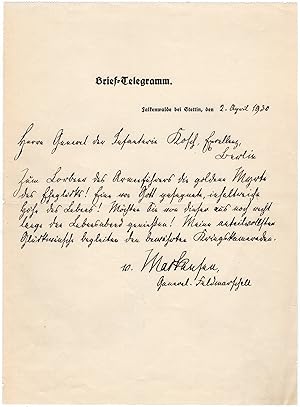 Brief-Telegramm.
Falkenwalde bei Stettin, den 2. April 1930
Herrn General der Infanterie Kosch, Exzellenz,
Berlin
Zum Lorbeer des Armeeführers die goldene Myrte
des Eheglücks! Eine von Gott gesegnete, inhaltreiche
Höhe des Lebens! Möchten Sie von dieser aus noch recht
lange den Lebensabend genießen! Meine anteilvollsten
Glückwünsche begleiten den bewährten Kriegskameraden.
v. Mackensen,
General-Feldmarschall